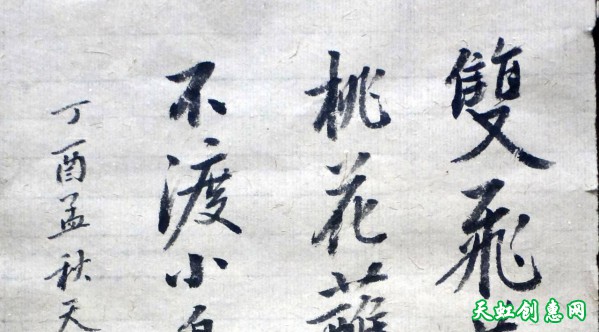 雙飛
桃花蘸
不渡小
丁酉孟秋天
天虹创惠网